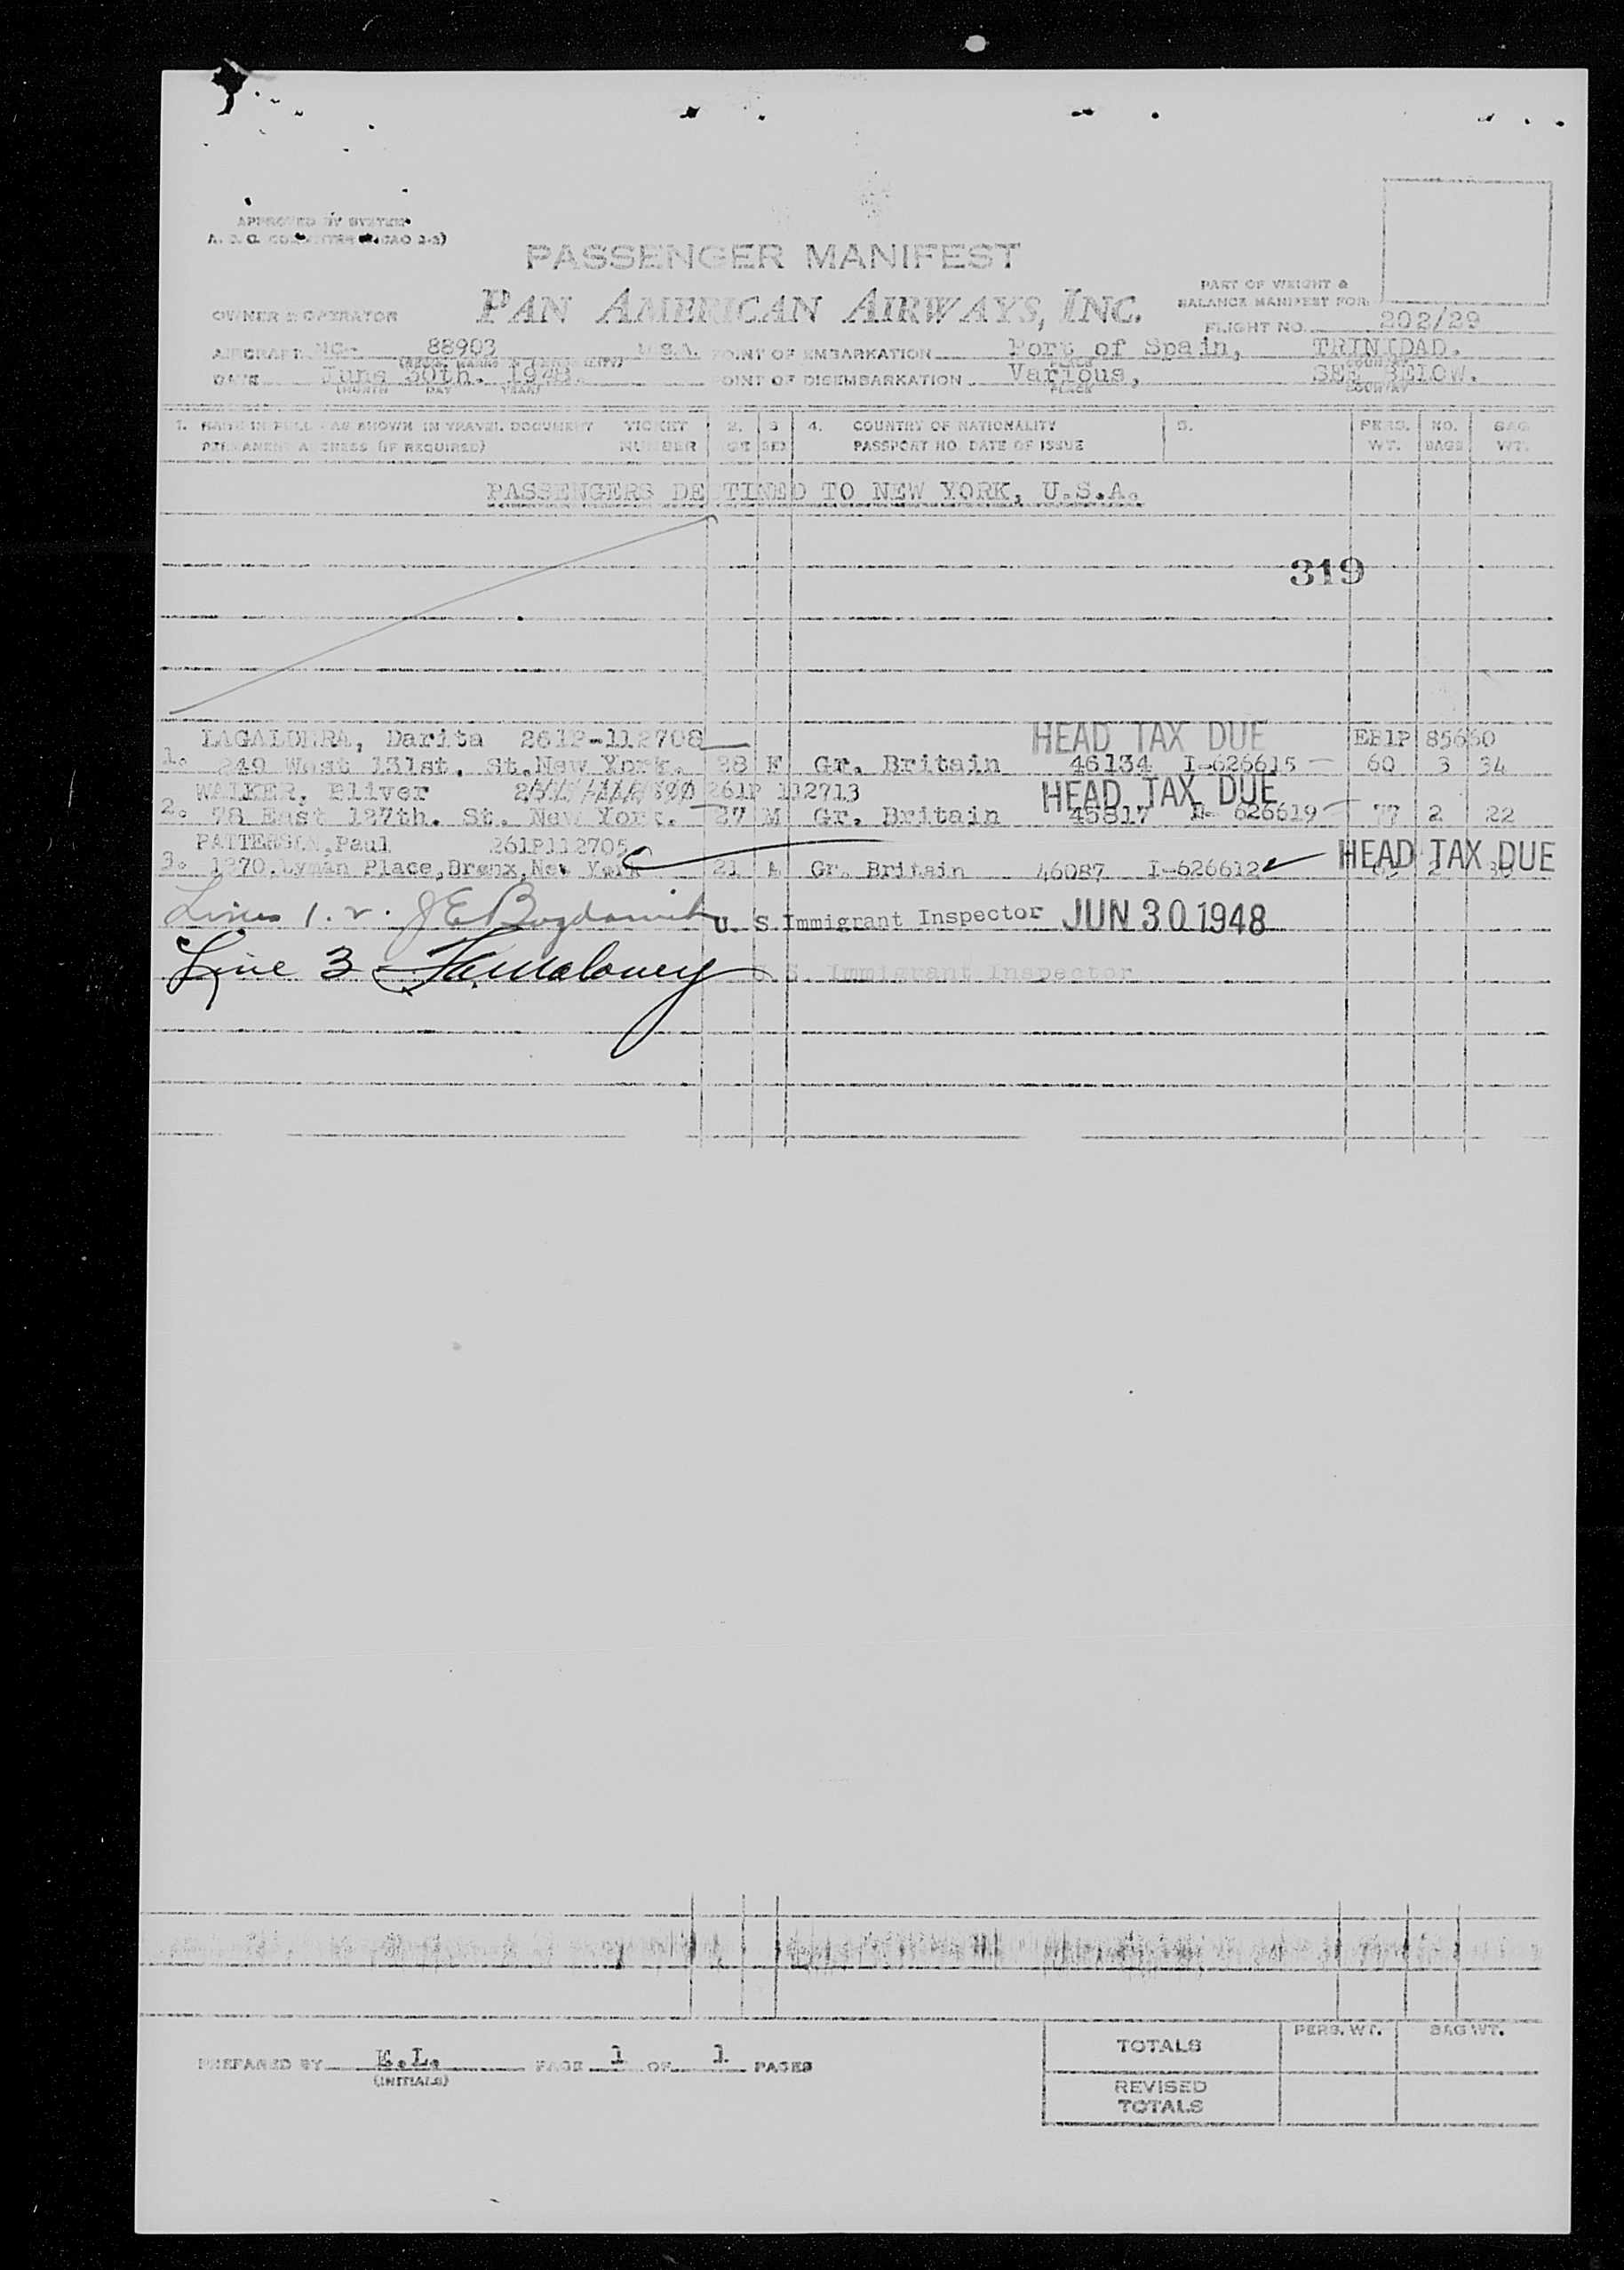 APPROVED BY SYSTEM
PASSENGER MANIFEST
PART OF WEIGHT &
BALANCE MANIFEST FOR
OWNER & OPERATOR PAN AMERICAN AIRWAYS, INC.
FLIGHT NO. 202/29
AIRCRAFT NC- 88903 U.S.A. POINT OF EMBARKATION Port of Spain, TRINIDAD.
DATE June 30th. 1948. POINT OF DISEMBARKATION Various, SEE BELOW.
(MONTH DAY YEAR) PLACE COUNTRY
1. NAME IN FULL - AS SHOWN IN TRAVEL DOCUMENT TICKET 2. 3 4. COUNTRY OF NATIONALITY 5. PERS. NO. BAG
PERMANENT ADDRESS (IF REQUIRED) NUMBER SEX PASSPORT NO. DATE OF ISSUE WT. BAGS WT.
PASSENGERS DESTINED TO NEW YORK, U.S.A.
319
LAGALDERA, Darita 261P-112708 HEAD TAX DUE EB1P 85660
1. 249 West 131st. St. New York. 28 F Gr. Britain 46134 I-626615 60 3 34
WALKER, 261P 112713 HEAD TAX DUE
2. 78 East 127th. St. New York. 27 M Gr. Britain 45817 626619 77 2 22
PATTERSON, Paul 261P112705
3. 1370, Lyman Place, Bronx, New York 21 Gr. Britain 46087 I-626612 HEAD TAX DUE
Lines 1. 2. U. S. Immigrant Inspector JUN 30 1948
Line 3 U. S. Immigrant Inspector
PERS. WT. BAG WT.
TOTALS
PREPARED BY E.L. PAGE 1 OF 1 PAGES
(INITIALS)
REVISED
TOTALS